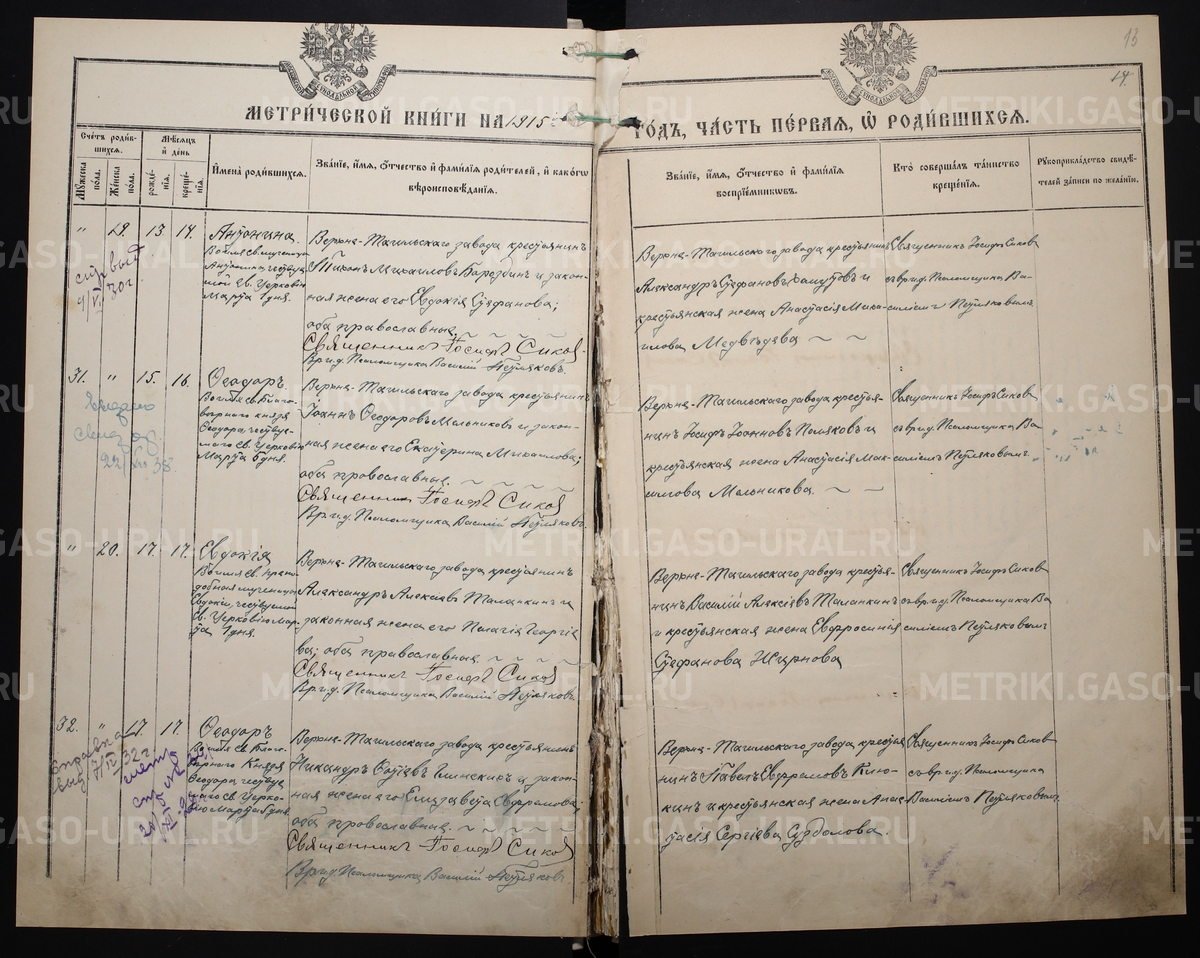 13
14.
МЕТРИ́ЧЕСКОЙ КНИ́ГИ НА 1915
ГО́ДЪ, ЧА́СТЬ ПЕ́РВАЯ, Ѡ҆ РОДИ́ВШИХСЯ.
Счетъ роди́вшихся.
Мѣсяцъ и҆ день
Имена̀ роди́вшихся.
Зва́нїе, и҆́мя, ѻ҆́тчество и҆ фами́лїя роди́телей, и҆ како́гѡ вѣроисповѣ́данїя.
Зва́нїе, и҆́мя, ѻ҆́тчество и҆ фами́лїя воспрїе́мниковъ.
Кто̀ соверша́лъ та́инство креще́нїя.
Рꙋкоприкла́дство свидѣ́телей за́писи по жела́нїю.
Мꙋ́жеска по́ла.
Же́нска по́ла.
рожде́нїя.
креще́нїя.
" 19. 13. 14.
Антонина.
Во имя св. мученицы
Антонины, чествуе
мой Св. Церковію
Марта 1 дня.
Верхне-Тагильскаго завода крестьянинъ
Тихонъ Михаиловъ Бороздинъ и закон-
ная жена его Евдокія Стефанова;
оба православные.
Священникъ Іосифъ Сиков
Вр. и. д. Псаломщика Василій Петляковъ.
Верхне-Тагильскаго завода крестьянинъ
Александръ Стефановъ Хамутовъ и
крестьянская жена Анастасія Миха-
илова Медвѣдева
Священникъ Іосифъ Сиков
съ вр. и д. Псаломщика Ва-
силіемъ Петляковымъ
31. " 15. 16.
Ѳеодоръ.
Во имя св. Благо-
вернаго князя
Ѳеодора, чествуе-
маго Св. Церковію
Марта 5 дня.
22/ 38.
Верхне-Тагильскаго завода крестьянинъ
Іоаннъ Ѳеодоровъ Мельниковъ и закон-
ная жена его Екатерина Михаилова;
оба провославные.
Священникъ Іосифъ Сиков
Вр. и. д. Псаломщика Василій Петляковъ.
Верхне-Тагильскаго завода крестья-
нинъ Іосифъ Іоанновъ Поляковъ и
крестьянская жена Анастасія Мак-
симова Мельникова
Священникъ Іосифъ Сиков
съ вр. и д. Псаломщика Ва
силіемъ Петляковымъ.
" 20. 17. 17.
Евдокія
Во имя св. препо-
добной мученицы
Евдокіи, чествуемой
Св. Церковію Мар-
та 1 дня.
Верхне-Тагильскаго завода крестьянинъ
Александръ Алексіевъ Таланкинъ и
законная жена его Пелагія Георгіе
ва; оба православные
Священникъ Іосифъ Сиков
Вр. и. д. Псаломщика Василій Петляковъ
Верхне-Тагильскаго завода крестья-
нинъ Василій Алексіевъ Таланкинъ
и крестьянская жена Евфросинія
Стефанова Жирнова
Священникъ Іосифъ Сиков
съ вр. и д. Псаломщика Ва
силіемъ Петляковымъ
32. " 17. 17.
Ѳеодоръ
Во имя св. Благо-
вернаго Князя
Ѳеодора, чествуе
маго св. Церко-
вію Марта 5 дня.
справка
32 г.
Верхне-Тагильскаго завода крестьянинъ
Никандръ Фотіевъ Глинскихъ и закон-
ная жена его Елизавета Евфремова;
оба провославные.
Священникъ Іосифъ Сиков
Вр. и д. Псаломщика Василій Петляковъ
Верхне-Тагильскаго завода крестья
нинъ Павелъ Евфремовъ Клю-
кинъ и крестьянская жена Анас-
тасія Сергіева Суздалова.
Священникъ Іосифъ Сиков
съ вр. и д. Псаломщика
Василіемъ Петляковымъ
METRIKI.GASO-URAL.RU